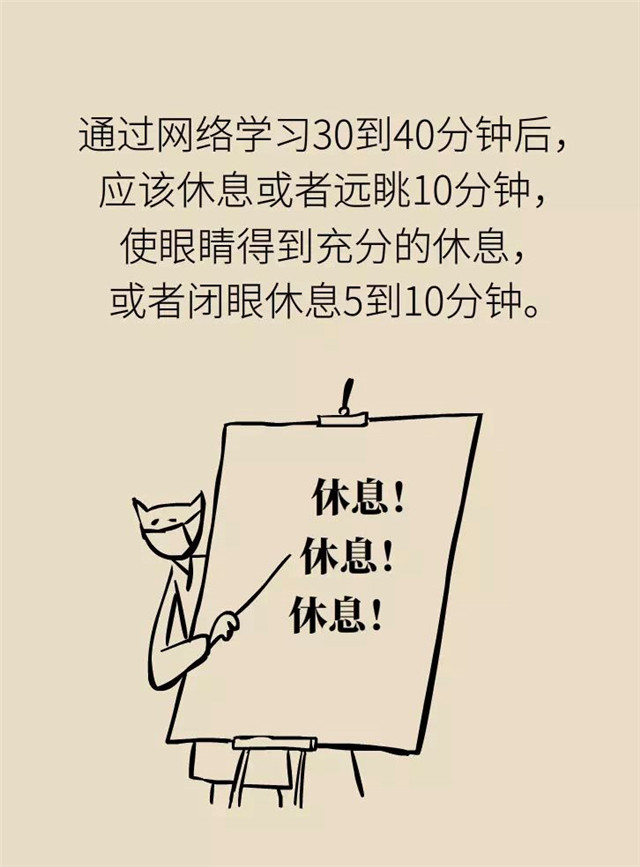 通过网络学习30到40分钟后，
应该休息或者远眺10分钟，
使眼睛得到充分的休息，
或者闭眼休息5到10分钟。
休息！
休息！
休息！